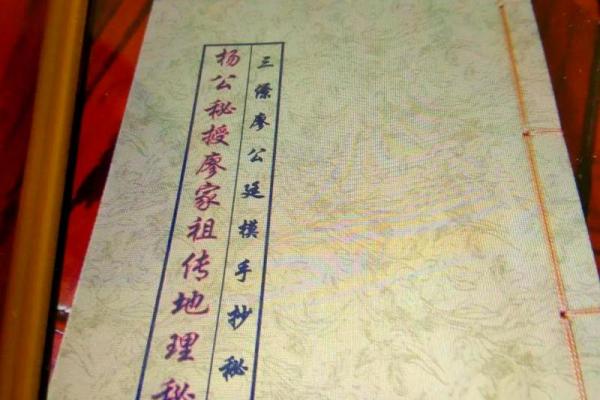 三僚廖公廷模手抄秘
杨公秘授廖家祖传地理秘